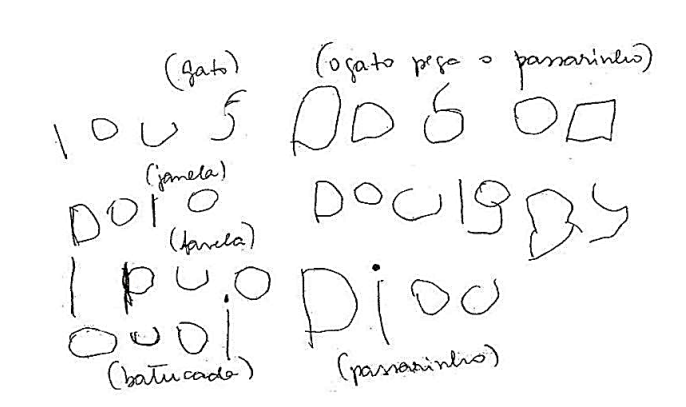 (gato) (o gato pega o passarinho)
I O U S A D G O D
(janela)
D O I O D O U I G B S
(favela)
I P U O D i O U
O U O i
(batucada) (passarinho)